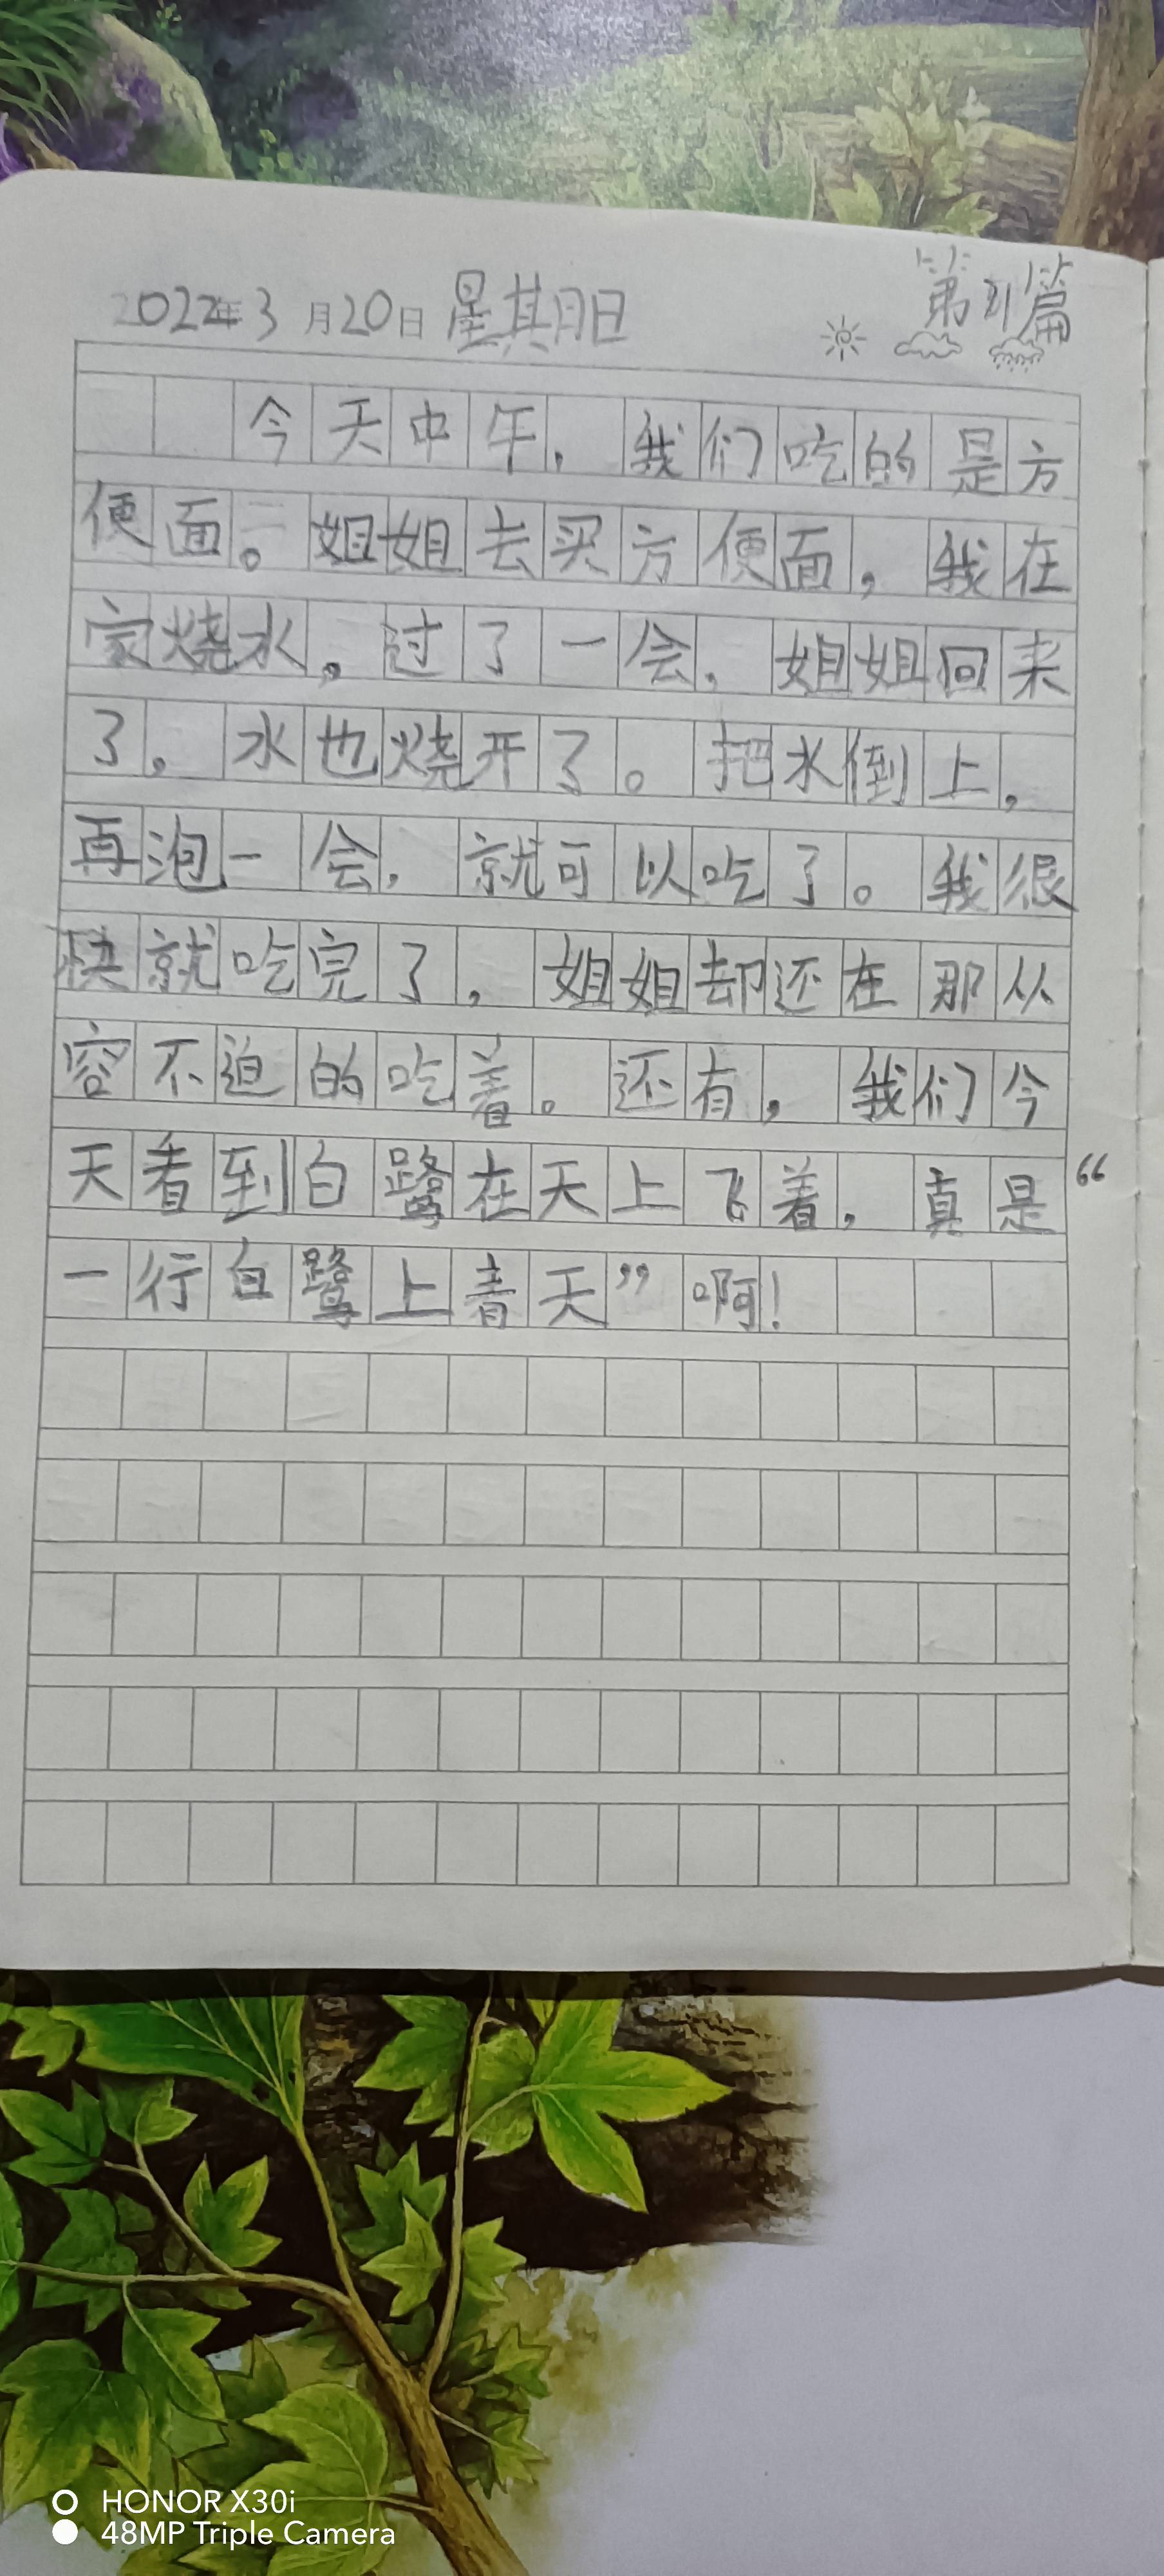 2022年3月20日 星期日
第21篇
今天中午，我们吃的是方
便面。姐姐去买方便面，我在
家烧水，过了一会，姐姐回来
了，水也烧开了。把水倒上，
再泡一会，就可以吃了。我很
快就吃完了，姐姐却还在那从
容不迫的吃着。还有，我们今
天看到白鹭在天上飞着，真是“
一行白鹭上青天”啊！
HONOR X30i
48MP Triple Camera